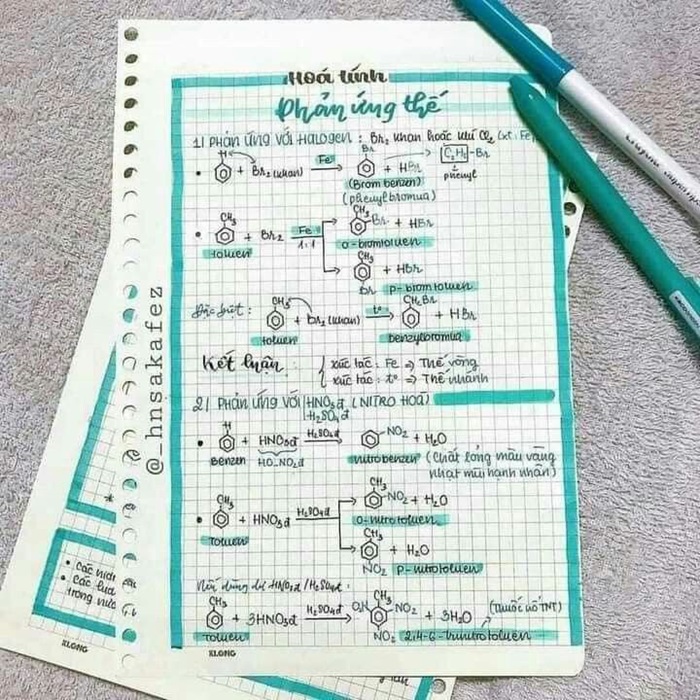 Hoá tính
Phản ứng thế
1) Phản ứng với Halogen : Br₂ khan hoặc khí Cl₂ (xt: Fe)
H + Br₂ (khan) Fe Br + HBr [C₆H₅]-Br
(Brom benzen) phenyl
(phenylbromua)
CH₃ + Br₂ Fe 1:1 CH₃ Br + HBr
toluen o-bromtoluen
CH₃ + HBr
Br p-bromtoluen
Đặc biệt : CH₃ + Br₂ (khan) t° CH₂Br + HBr
toluen benzylbromua
Kết luận : { xúc tác : Fe => Thế vòng
xúc tác : t° => Thế nhánh
2) Phản ứng với HNO₃đ (NITRO HOÁ)
H₂SO₄đ
H + HNO₃đ H₂SO₄đ NO₂ + H₂O
Benzen HO_NO₂đ nitrobenzen (Chất lỏng màu vàng
nhạt mùi hạnh nhân)
CH₃ + HNO₃đ H₂SO₄đ CH₃ NO₂ + H₂O
Toluen o-nitrotoluen
CH₃ + H₂O
NO₂ p-nitrotoluen
Nếu dùng dư HNO₃đ/H₂SO₄đ :
CH₃ + 3HNO₃đ H₂SO₄đ CH₃ O₂N NO₂ + 3H₂O (Thuốc nổ TNT)
Toluen NO₂ 2,4-6-trinitrotoluen
KLONG
KLONG
@_hnsakafez
• Các
• Các
trong nước